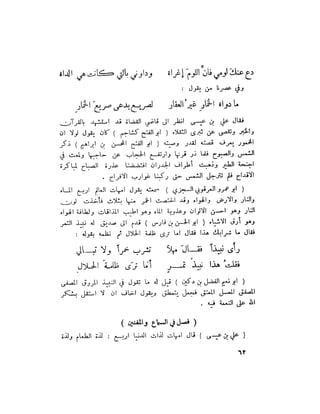 دع عنك لومي فان اللوم إغراء وداوني بالتي كانت هي الداء
وفي عصرنا من يقول :
ما دواء الخمار غير العقار لصريع يدعى صريع الخمار
فقال علي بن عيسى انظر الى قاضي القضاة قد استشهد بالقرآن
والخبر وتفصى عن ثبرى الثقلاء ( ابو الفتح كشاجم ) كان يقول لولا ان
المخمور يعرف قصته لقدم وصيته ( ابو الفتح المحسن بن ابراهيم ) ذكر
الشمس والصبوح فقال ذر قرنها وارتفع الحجاب عن حاجبها ولمعت في
اجنحة الطير وذهبت أطراف الجدران افتضضنا عذرة الصباح لمباكرة
الاقداح فلم تترجل الشمس حتى ركبنا غوارب الافراح .
( ابو عمرو العرقوبي السجزي ) سمعته يقول امهات العالم اربع الماء
والنار والارض والهواء وقد اختصت الخمر منها بثلاث فأخذت لون
النار وهو احسن الالوان وعذوبة الماء وهو اطيب المذاقات ولطافة الهواء
وهو أرق الاشياء ( ابو الحسن بن فارس ) قدم الى صديق له نبيذ التمر
فقال ما شرابك هذا فقال اما ترى ظلمة الحلال ثم نظمه بقوله :
رأى نبيذاً فقال مهلا تشرب خمراً ولا تبالي
فقلت هذا نبيذ تمر أما ترى ظلمة الحلال
( ابو نعيم الفضل بن دكين ) قيل له ما تقول في النبيذ المروق المصفى
المصفق المعسل المعتق فجعل يتمطق ويقول اخاف ان لا استقل بشكر
الله على النعمة فيه .
( فصل في السماع والمغنين )
( علي بن عيسى ) قال امهات لذات الدنيا اربع : لذة الطعام ولذة
٦٢